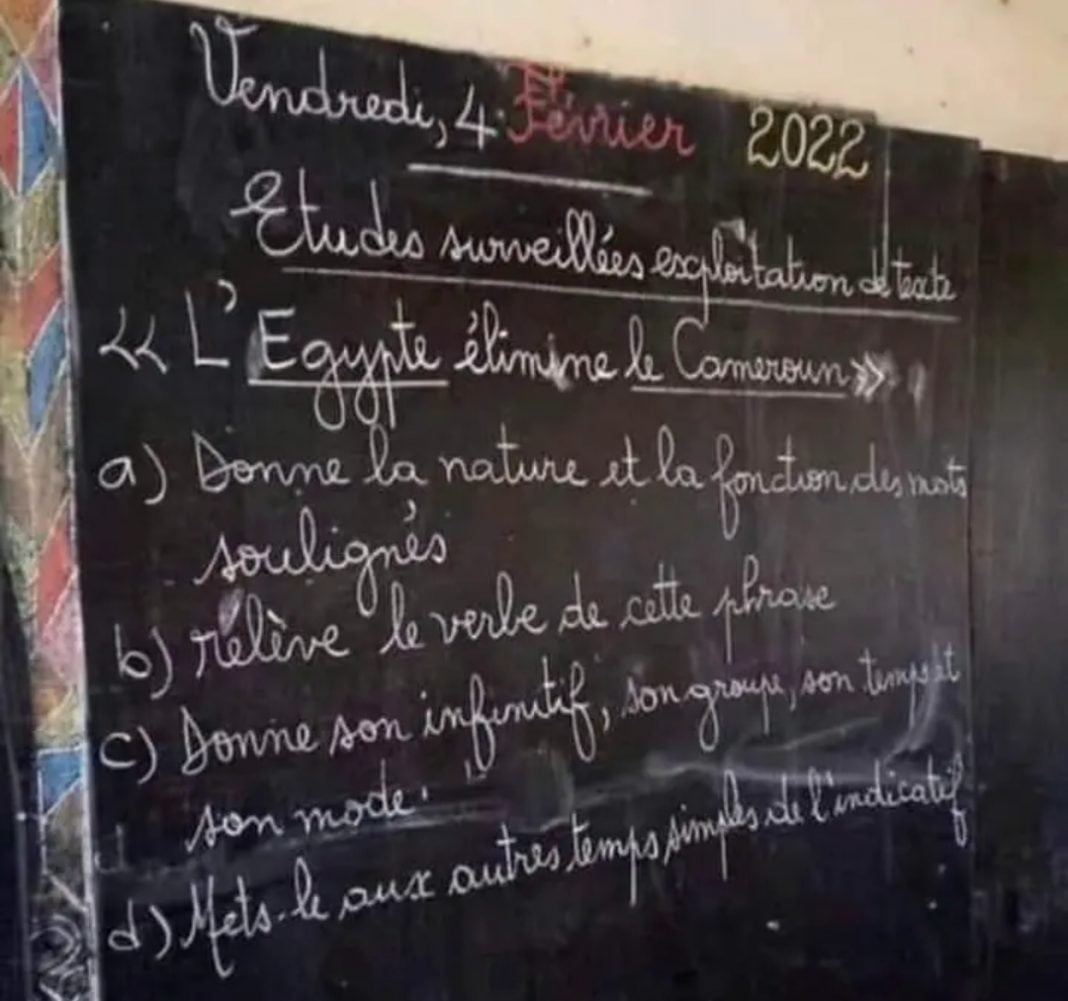 Vendredi, 4 Février 2022
Etudes surveillées exploitation de texte
<< L'Egypte élimine le Cameroun >>
a) Donne la nature et la fonction des mots
soulignés
b) rélève le verbe de cette phrase
c) Donne son infinitif, son groupe, son temps et
son mode.
d) Mets-le aux autres temps simples de l'indicatif